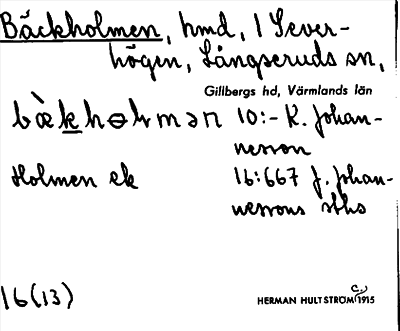 Bäckholmen, hmd, 1 Sever-
högen, Långseruds sn,
Gillbergs hd, Värmlands län
bæ̀khɵlmən 10:- K. Johan-
nesson
Holmen ek 16:667 J. Johan-
nessons stho
16(13)
HERMAN HULTSTRÖM C:J 1915